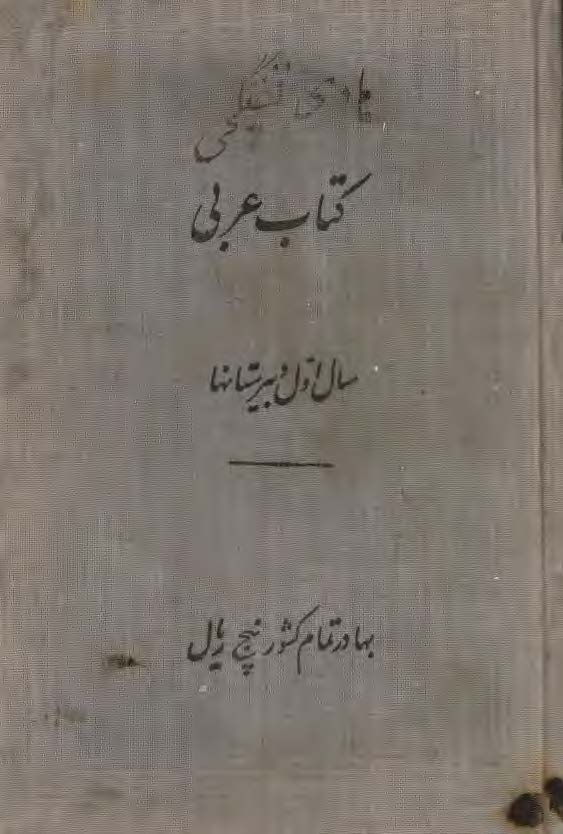 هادی
کتاب عربی
سال اول دبیرستانها
بها در تمام کشور پنج ریال